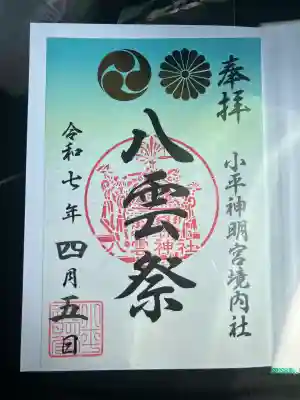 奉拝
小平神明宮境内社
八雲祭
八雲神社
令和七年
四月五日